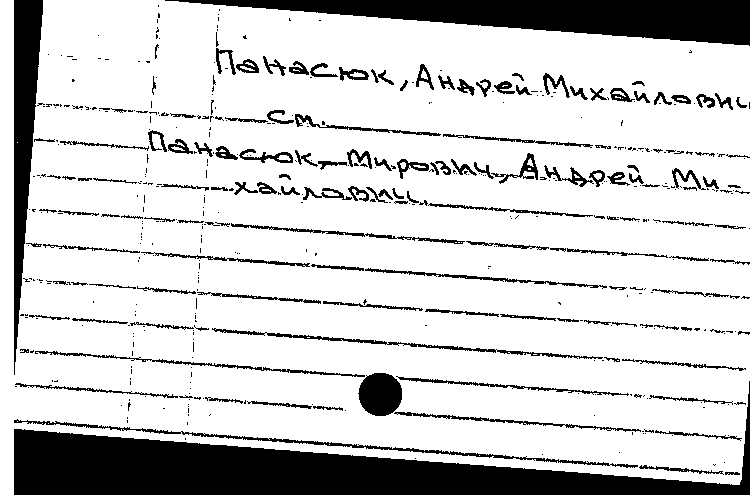 Панасюк, Андрей Михайлович
см.
Панасюк-Мирович, Андрей Ми-
хайлович.